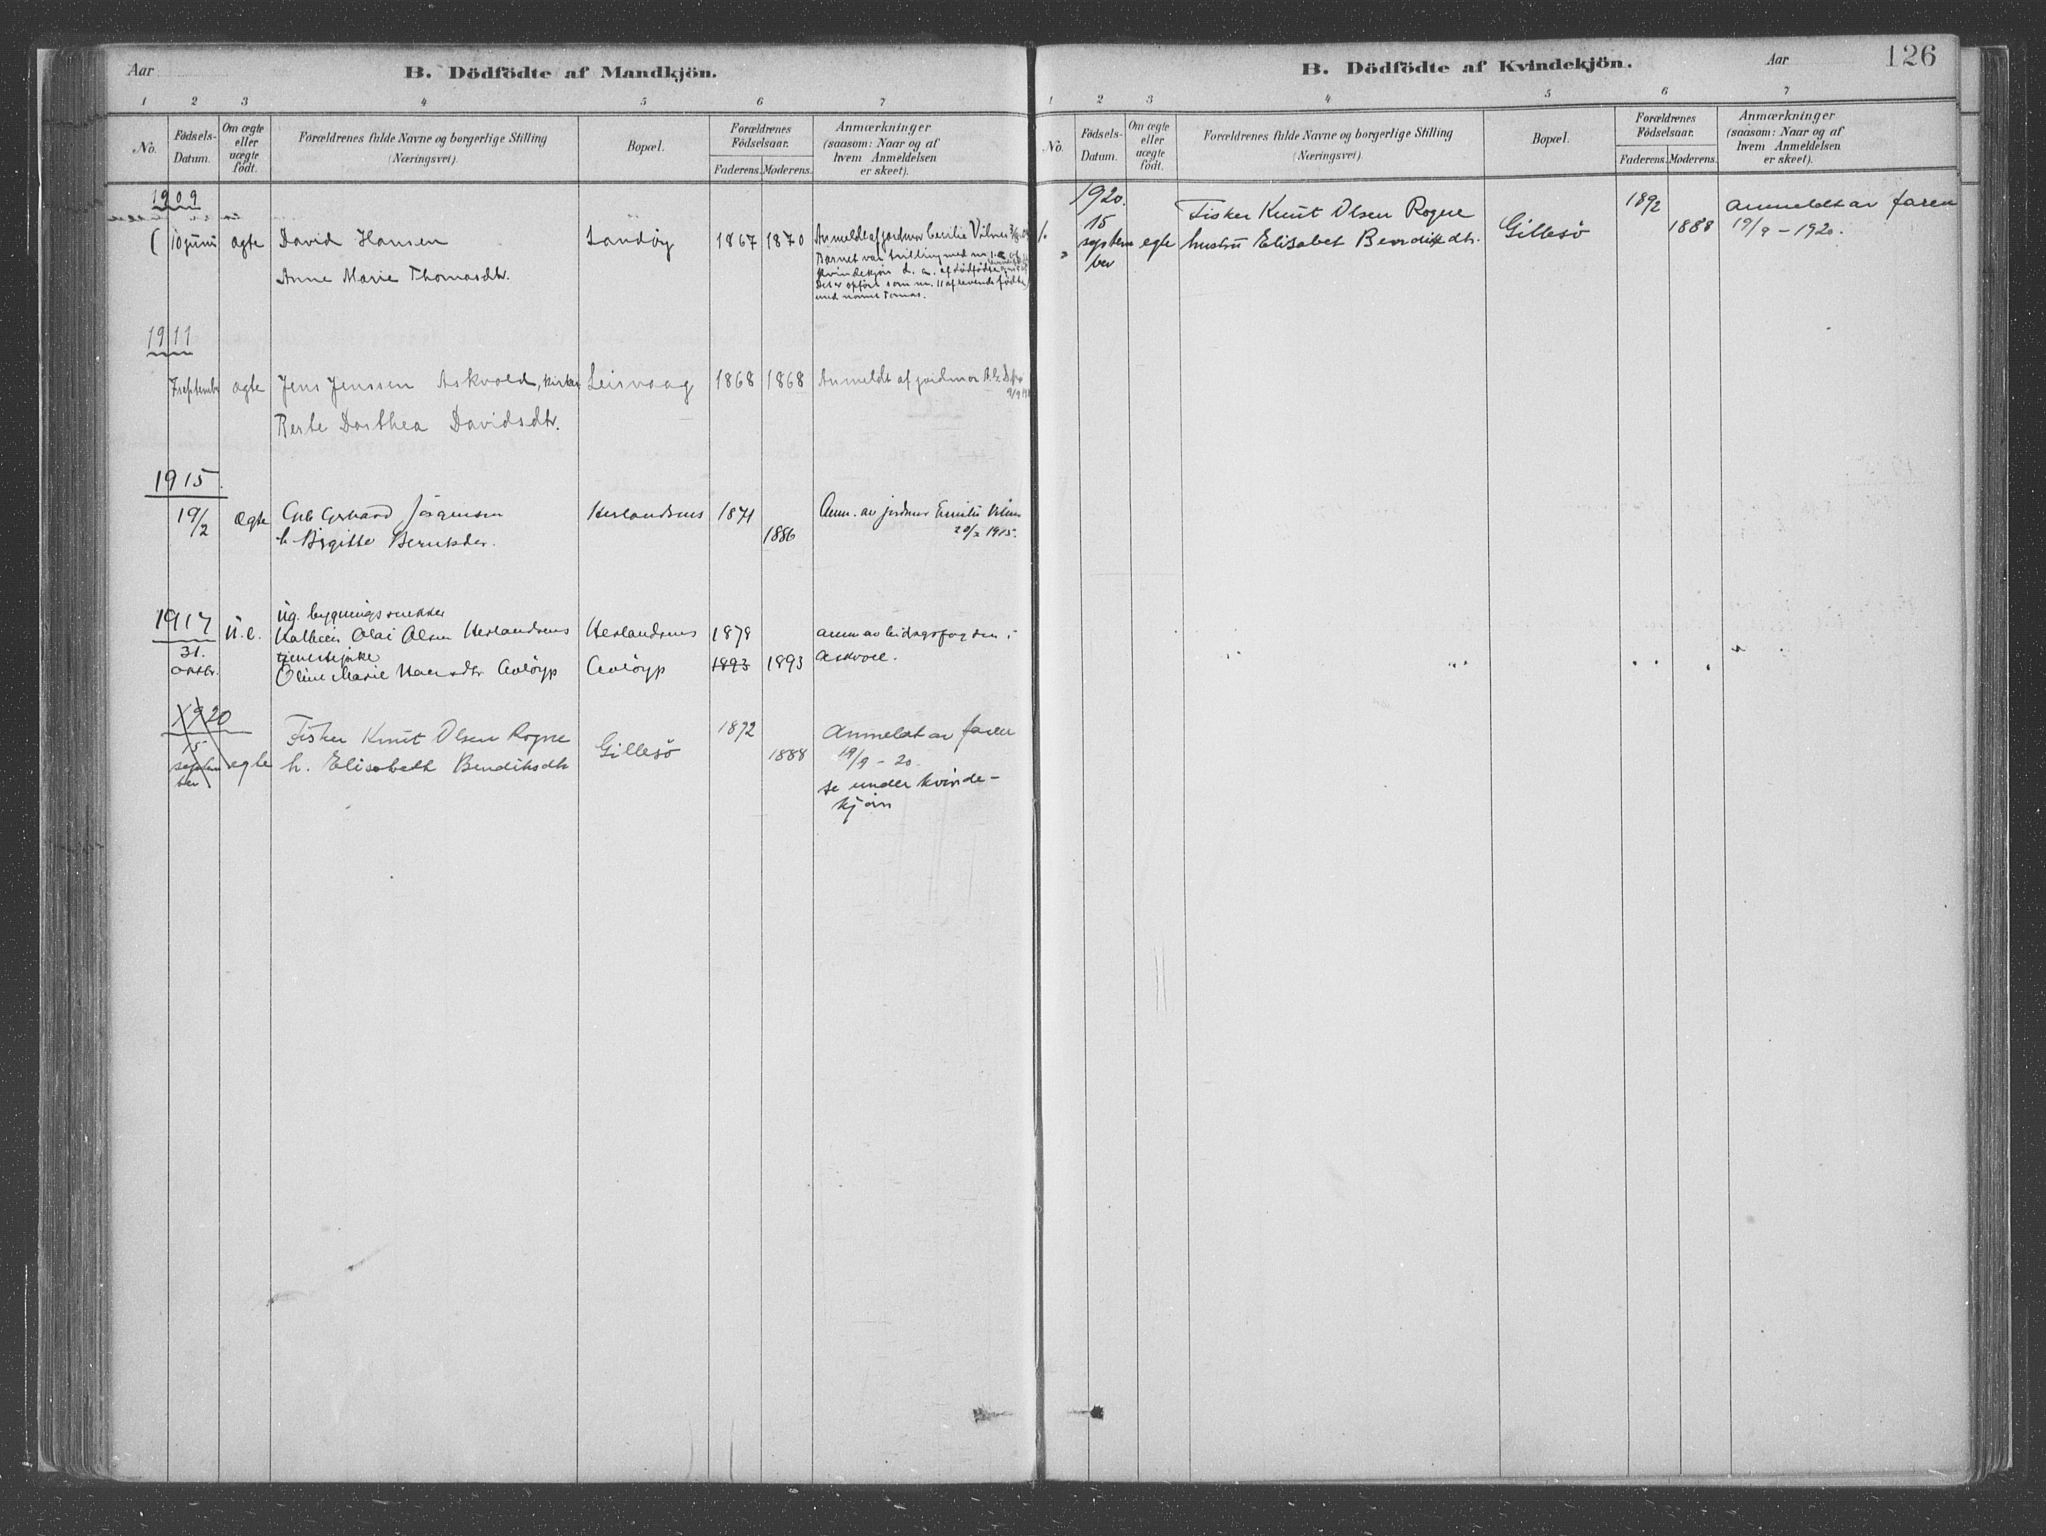 Aar
B. Dödfödte af Mandkjön.
1 2 3 4 5 6 7
No.
Födsels-Datum.
Om ægte eller uægte födt.
Forældrenes fulde Navne og borgerlige Stilling (Næringsvei).
Bopæl.
Forældrenes Födselsaar.
Faderens. Moderens.
Anmærkninger (saasom: Naar og af hvem Anmeldelsen er skeet).
1909
10 juni ægte David Hansen Sandöy 1867 1870 Anmeldt af jordmor Cecilie Vilnes
Barnet var tvilling med nr. 1
kvindekjön d. a. af dödfödte
Det er opfört som nr. 11 af levende födte
med navnet Tomas.
Anne Marie Thomasdtr.
1911
7 septembr ægte Jens Jenssen Askvold, Leirvaag 1868 1868 Anmeldt af jordmor
Berte Dorthea Davidsdtr.
1915.
19/2 Ægte Gerhard Jörgensen Herlandsnes 1871 Anm. av jordmor
h. Birgitte 1886 1915.
1917
31. oktbr. u.e. Ug. bygningssnekker
Olai Olsen Herlandsnes Herlandsnes 1878 anm av
tjenestepike
Oline Marie 1893 1893 Askvoll.
1920
15 september egte Fisker Knut Olsen Rogne Gillesö 1892 Anmeldt av faren
h. Elisabeth Bendiksdtr 1888 19/9 - 20.
se under kvinde-
kjön
B. Dödfödte af Kvindekjön.
Aar
126
1 2 3 4 5 6 7
No.
Födsels-Datum.
Om ægte eller uægte födt.
Forældrenes fulde Navne og borgerlige Stilling (Næringsvei).
Bopæl.
Forældrenes Födselsaar.
Faderens. Moderens.
Anmærkninger (saasom: Naar og af hvem Anmeldelsen er skeet).
1920.
1. 15 september egte Fisker Knut Olsen Rogne Gillesö 1892 anmeldt av faren
hustru Elisabet Bendiksdtr. 1888 19/9 - 1920.